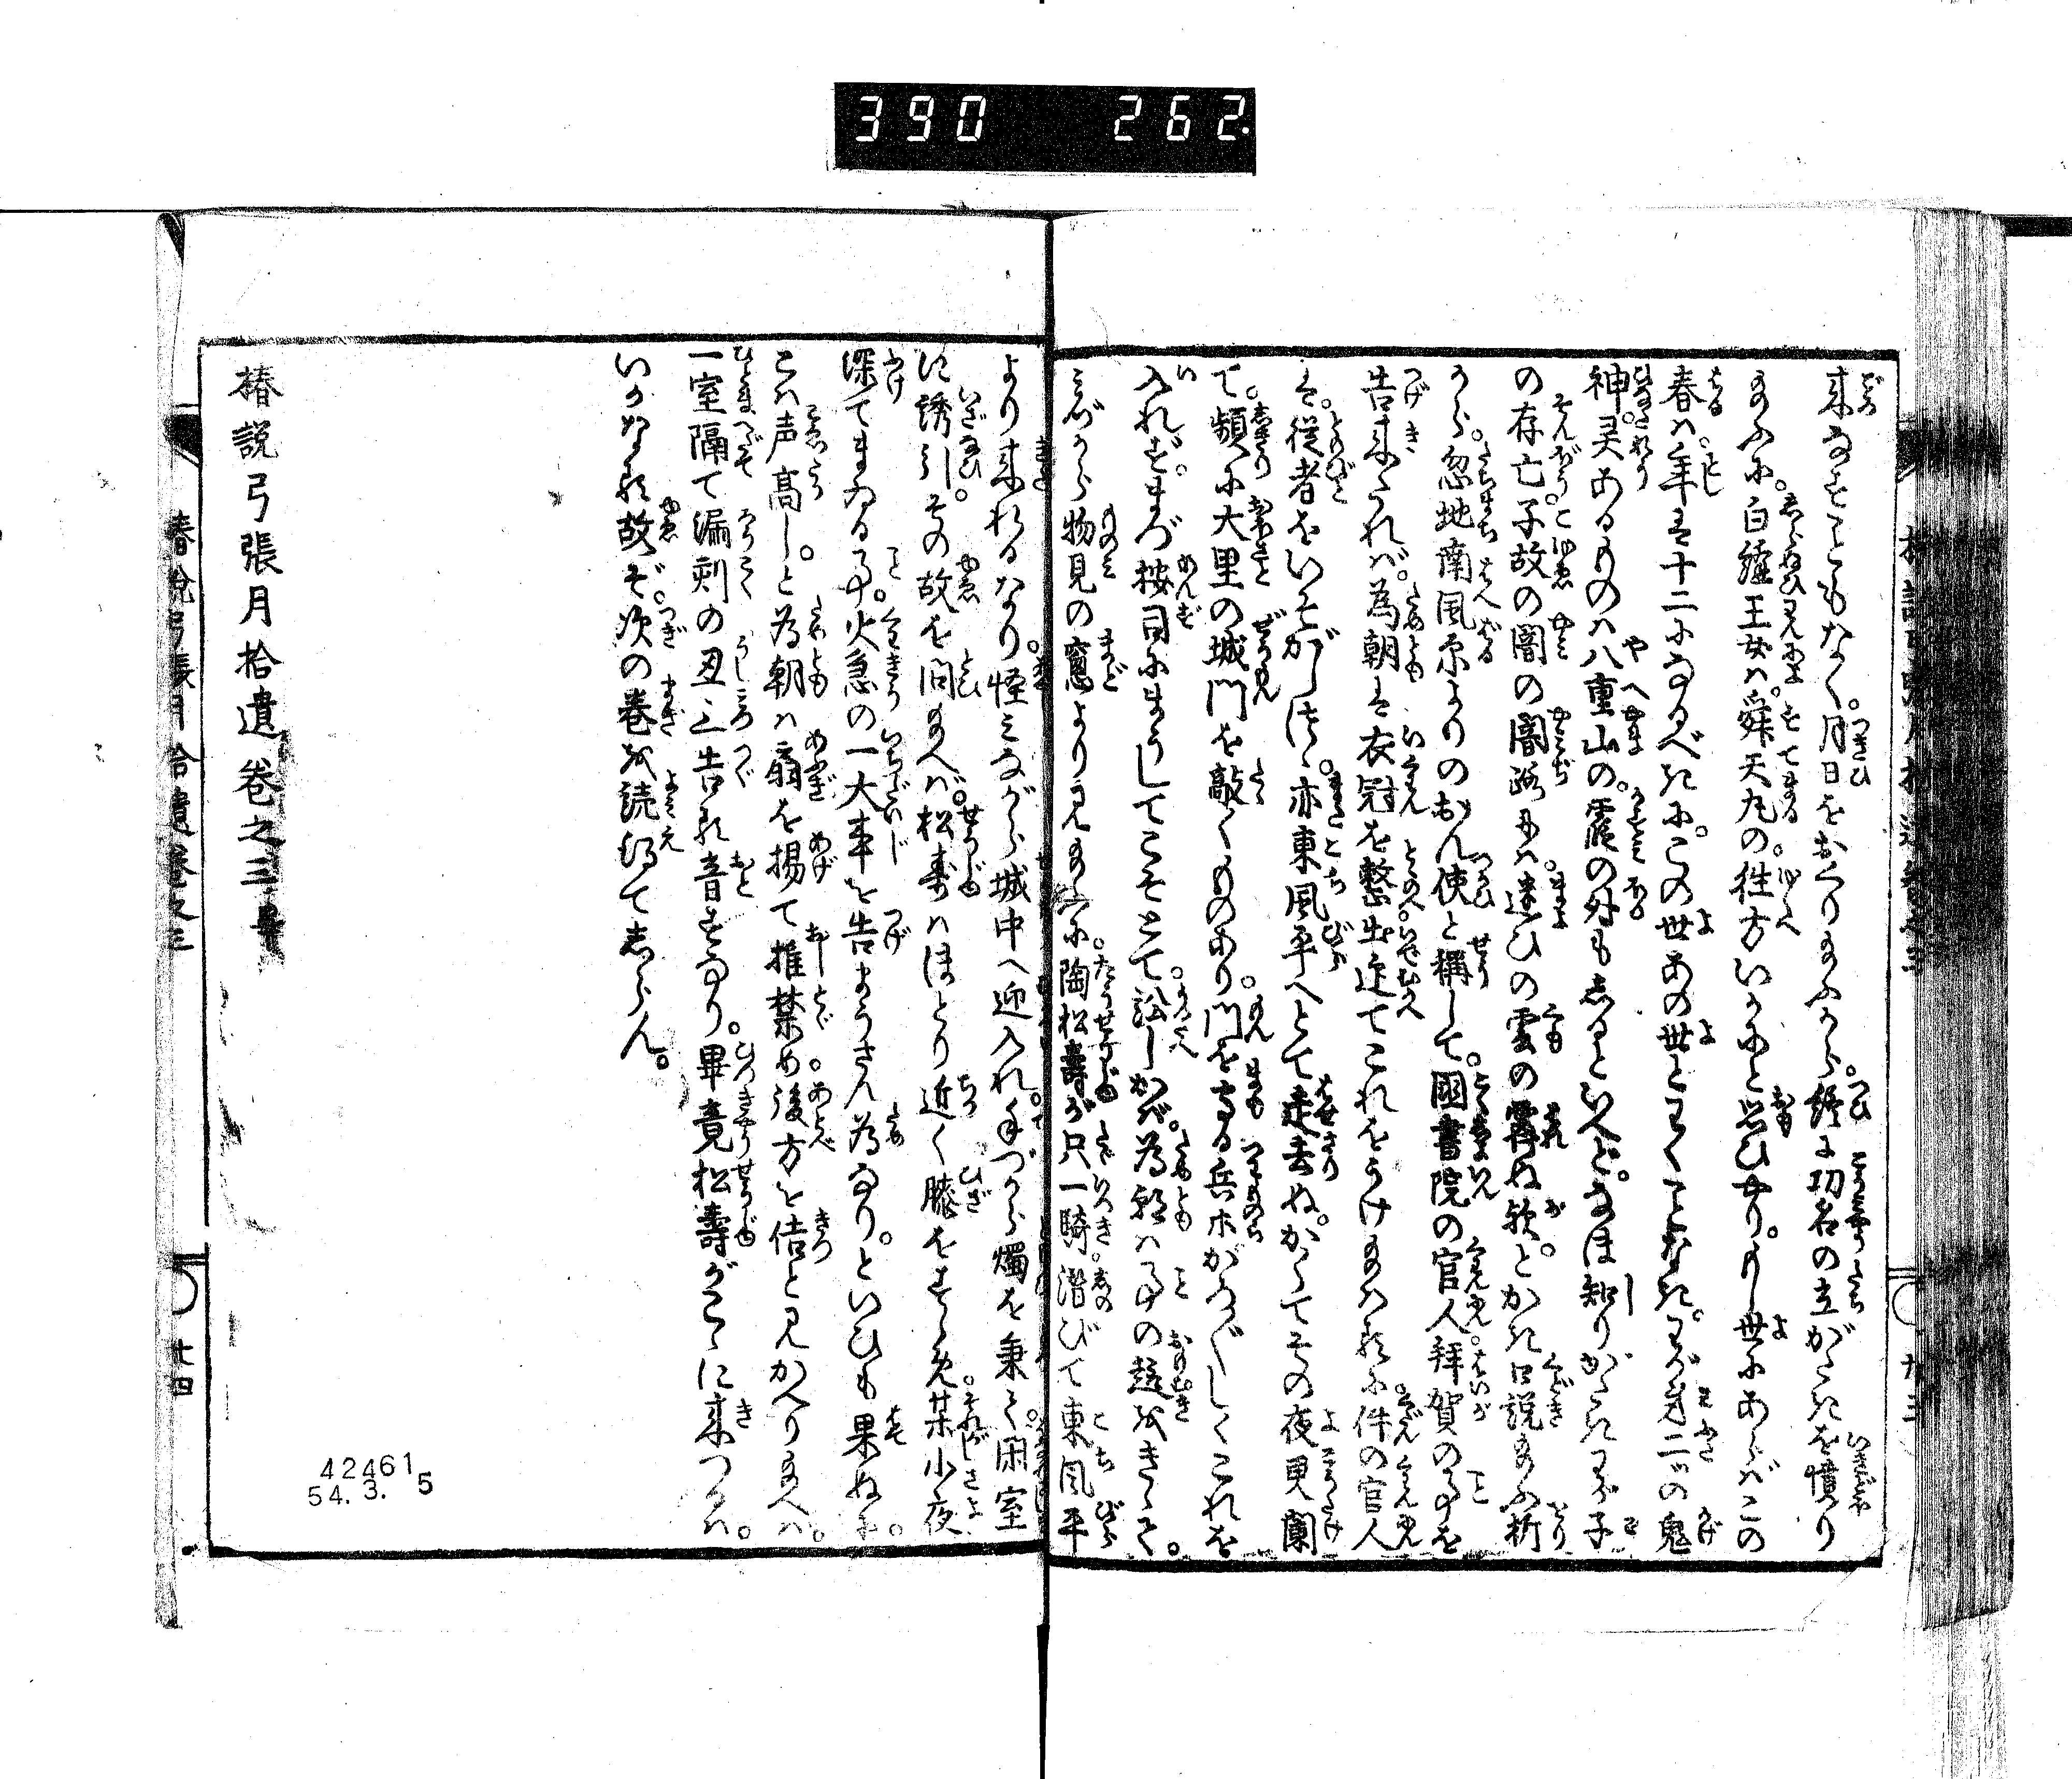 390 262
来なすこともなく。月日をおくり給ふから。終に功名の立がたきを憤り
給ふに。白縫王女は。舜天丸の。往方いかにと思ひやり。もし世にあらばこの
春は。年は十二になるべきに。この世あの世とわくことなき。わが身二ツの鬼
神。灵あるものは八重山の。霞の外もしるといへど。なほ知りがたきわが子
の存亡。子故の闇の闇路には。迷ひの雲の霽ぬ歟。とかき口説給ふ折
から。忽地南風原よりのおん使と稱して。國書院の官人拜賀の事を
告来にければ。為朝は衣冠を整。出迎てこれをうけ給はるに件の官人
は。従者をいそがしつゝ。亦東風平へとて走去ぬ。かくてその夜更闌
て。頻に大里の城門を敲くものあり。門を守る兵士がろ〳〵しくこれを
入れず。まづ按司にまうしてこそとて。訟しかば。為朝は事の趣をきゝて。
みづから物見の窓より見給ふに。陶松壽が只一騎。潜びて東風平
より来れるなり。怪みながら城中へ迎入れ。手づから燭を秉て。閑室
に誘引。その故を問給へば。松寿はほとり近く膝をすゝめ。某小夜
深てまゐる事。火急の一大事を告まうさん為なり。といひも果ぬに。
こは声高し。と為朝は扇を揚て推禁め。後方を佶と見かへり給へば。
一室隔て漏刻の丑三告る音すなり。畢竟松壽がこゝに来つるは。
いかなる故ぞ。次の巻を読得てしらん。
椿説弓張月拾遺巻之三
椿說弓張月拾遺卷之三
十四
424615
54.3.